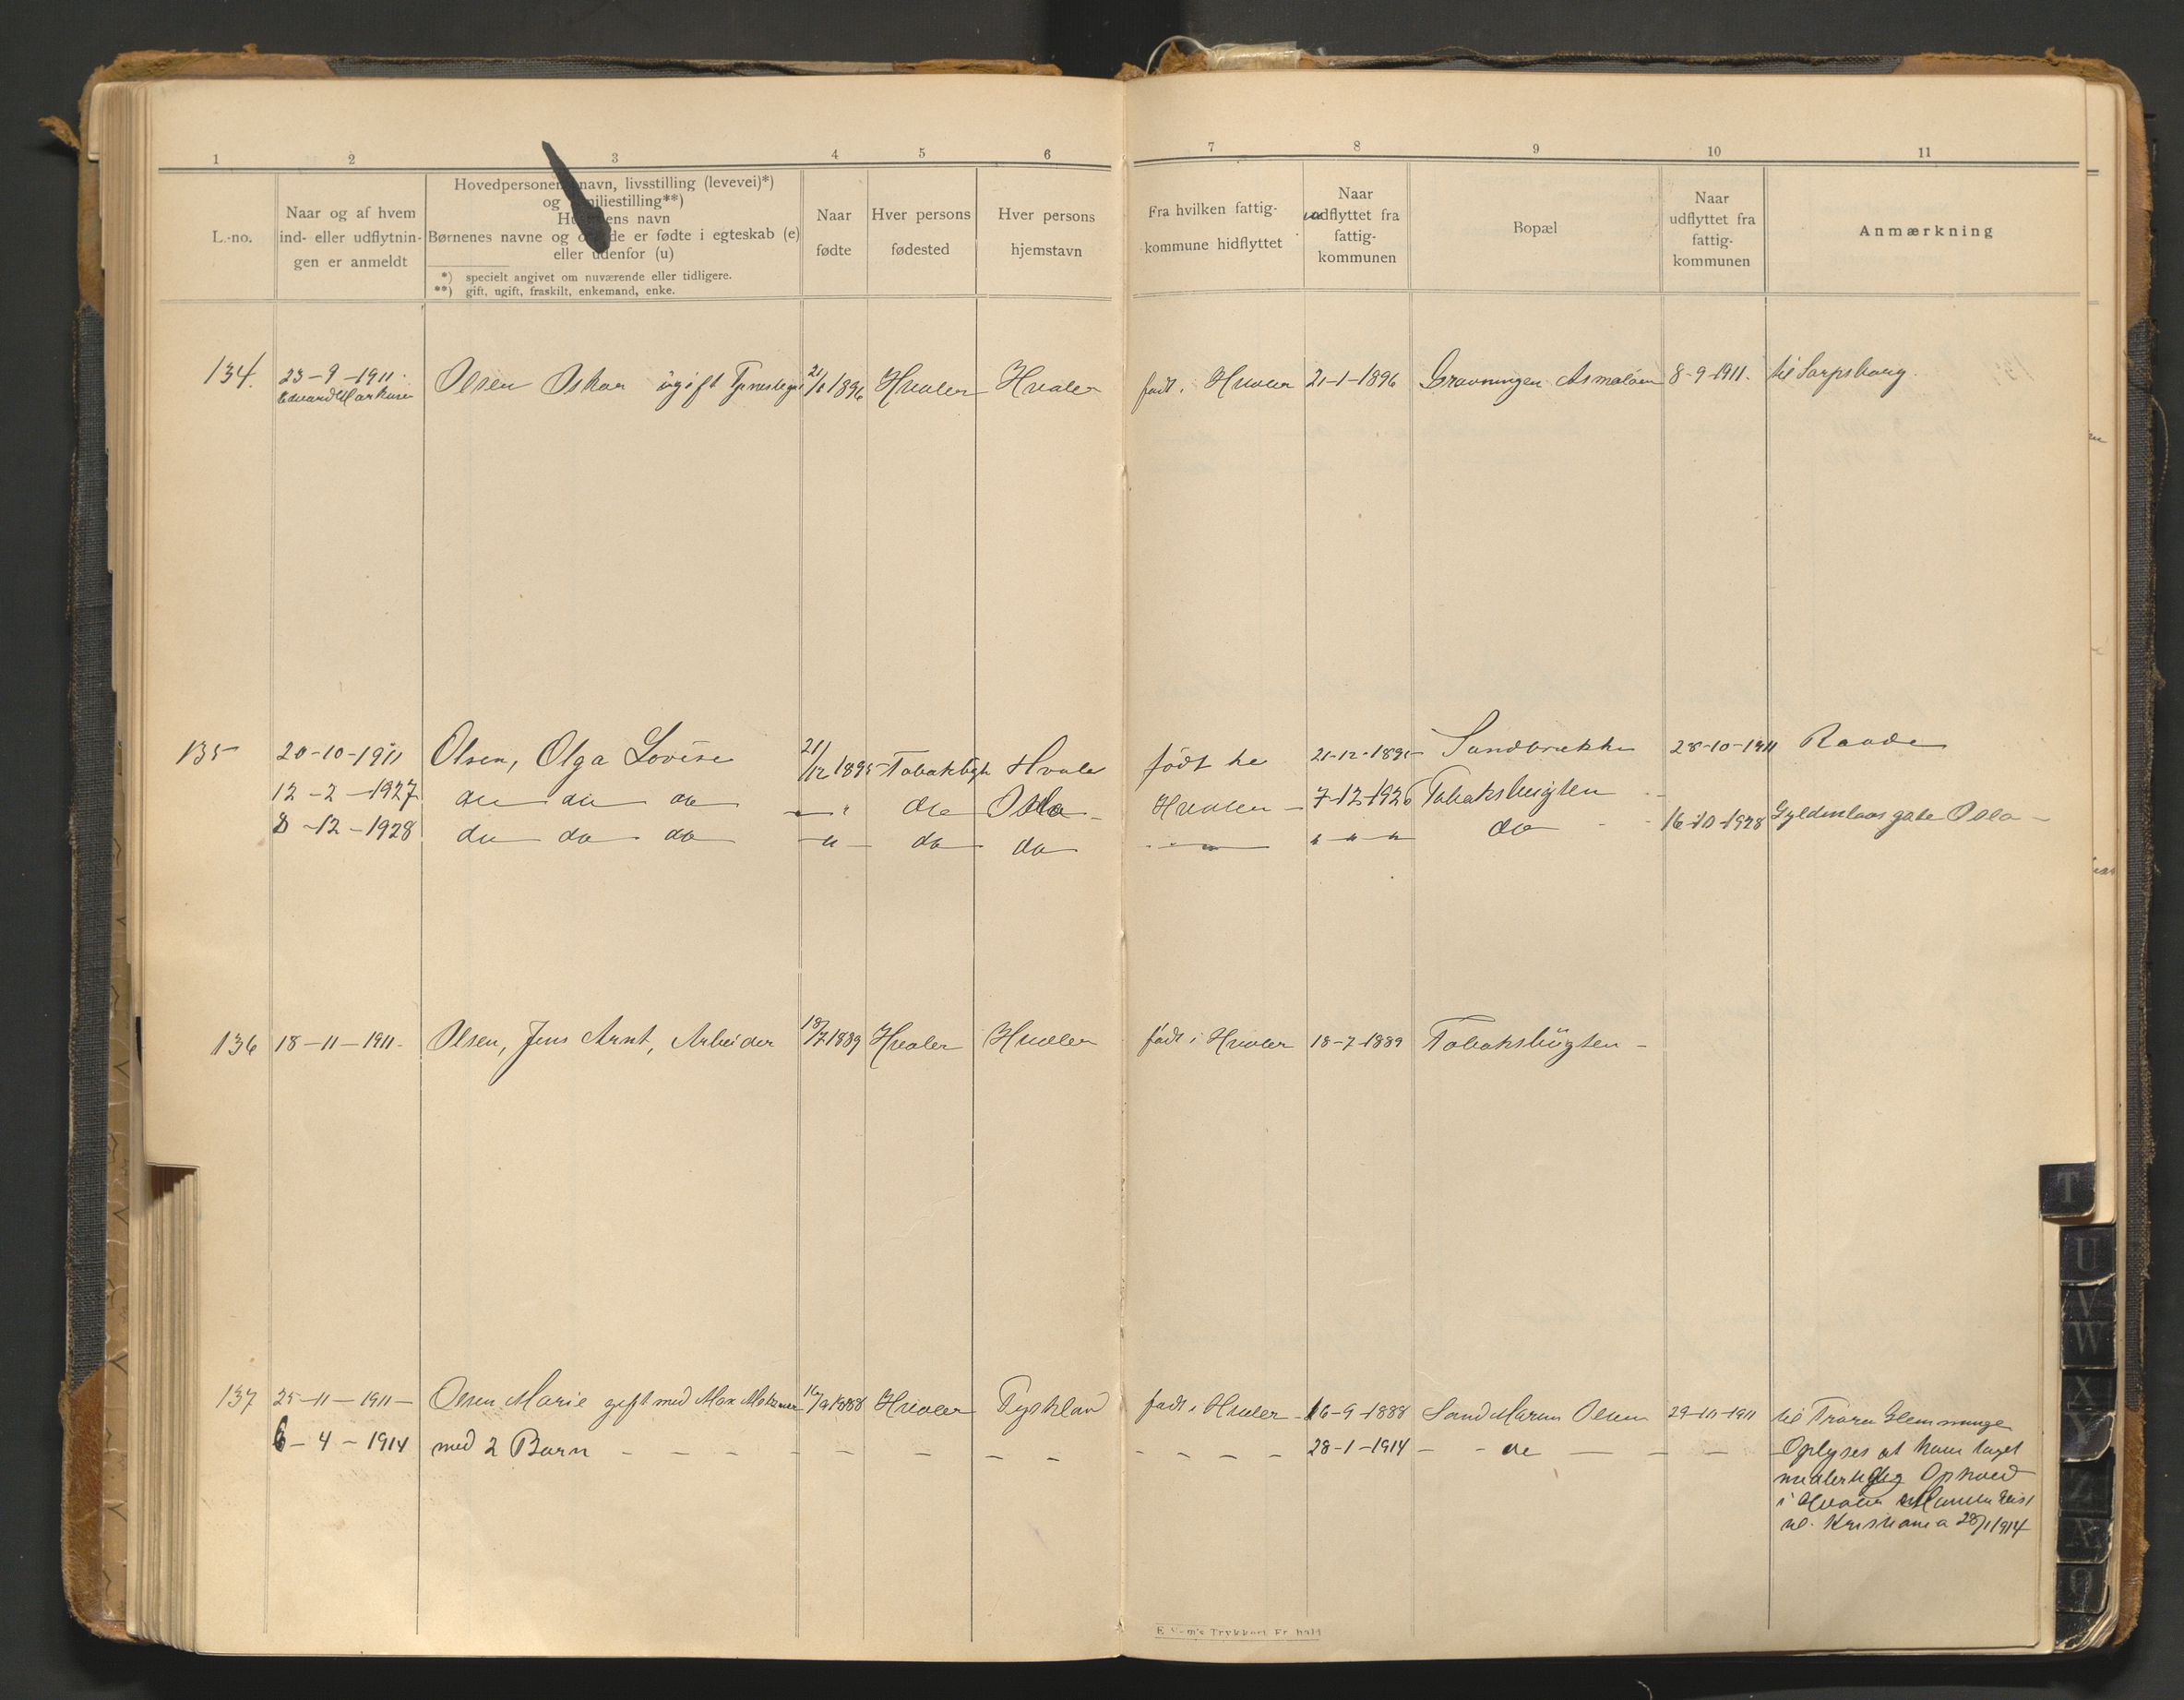 1 2 3 4 5 6 7 8 9 10 11
L.-no.
Naar og af hvem
ind- eller udflytnin-
gen er anmeldt
Hovedpersonens navn, livsstilling (levevei)*)
og familiestilling**)
Hustruens navn
Børnenes navne og om de er fødte i egteskab (e)
eller udenfor (u)
*) specielt angivet om nuværende eller tidligere.
**) gift, ugift, fraskilt, enkemand, enke.
Naar
fødte
Hver persons
fødested
Hver persons
hjemstavn
Fra hvilken fattig-
kommune hidflyttet
Naar
indflyttet fra
fattig-
kommunen
Bopæl
Naar
udflyttet fra
fattig-
kommunen
Anmærkning
134. 23-9-1911. Olsen Oskar ugift 21/1 1896 Hvaler Hvaler født i Hvaler 21-1-1896 Gravningen Asmaløen 8-9-1911. til Sarpsborg.
Edvard Markusen
135 20-10-1911 Olsen, Olga Lovise 21/12 1895 Tobakbgt Hvaler født he 21-12-1895 Sandbrække 28-10-1911 Raade
12-2-1927 do do do — " do Oslo - Hvaler - 7-12-1926 Tobaksbugten
8-12-1928 do do do — " — do do — " — " " " do 16-10-1928 Gyldenløvsgate Oslo -
136 18-11-1911. Olsen, Jens Arnt, Arbeider 18/7 1889 Hvaler Hvaler født i Hvaler 18-7-1889 Tobaksbugten -
137 25-11-1911- Olsen, Marie gift med Max 16/9 1888 Hvaler Tyskland født i Hvaler 16-9-1888 Sand Maren Olsen 29-10-1911 til Trara Glemminge
6-4-1914 med 2 Barn - - - - - - - - - - - - 28-1-1914 - - do - - - Oplyses at have taget
midlertidig Ophold
i Hvaler Manden reist
til Kristiania 28/1 1914
T
U
V
W
X
Y
Z
Æ
Ø